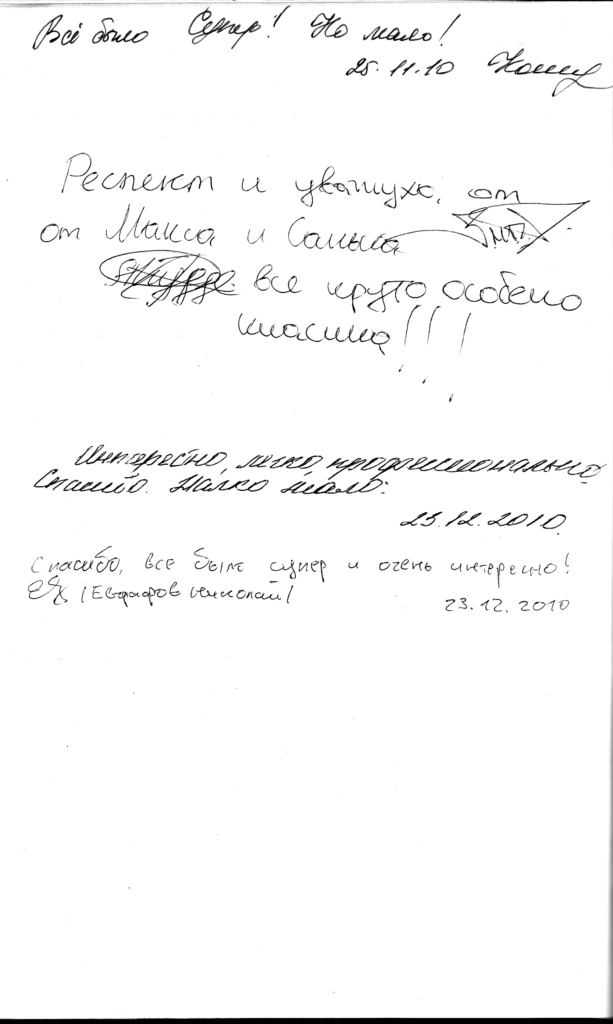 Всё было Супер! Но мало!
25.11.10
Респект и уважуха, от
от Макса и Санька
все круто особено
классика!!!
Интересно, легко, профессионально
Спасибо. Жалко мало.
23.12.2010
Спасибо, все было супер и очень интересно!
(Евграфов Николай)
23.12.2010